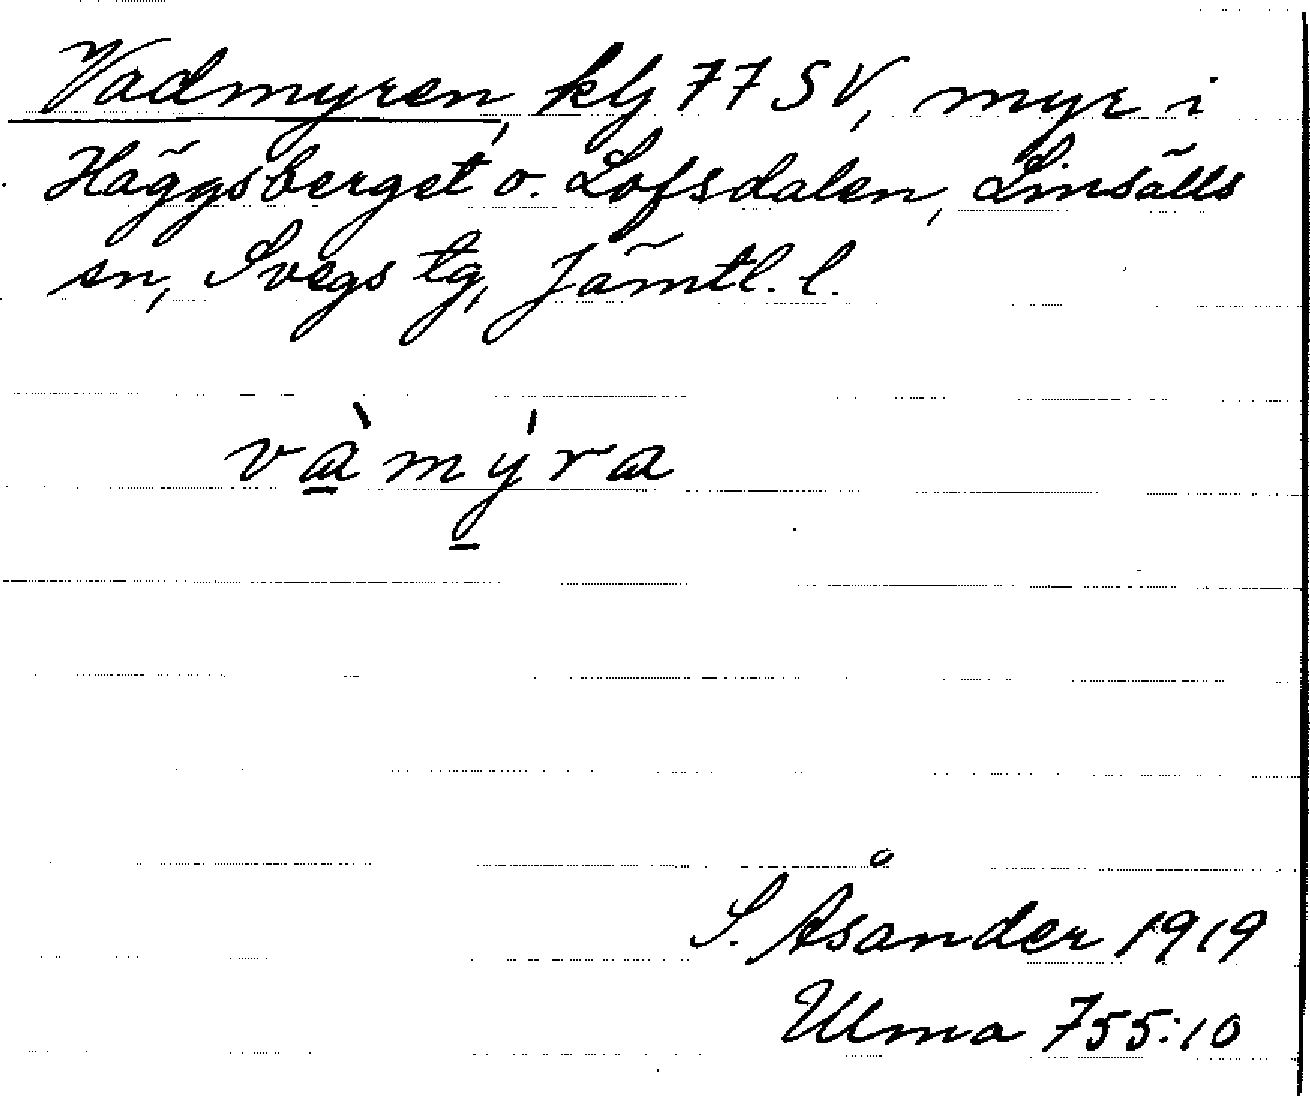 Vadmyren, klj 77 SV, myr i
Häggsberget o. Lofsdalen, Linsälls
sn, Svegs tg, Jämtl. l.
vàmýra
S. Åsander 1919
Ulma 755:10